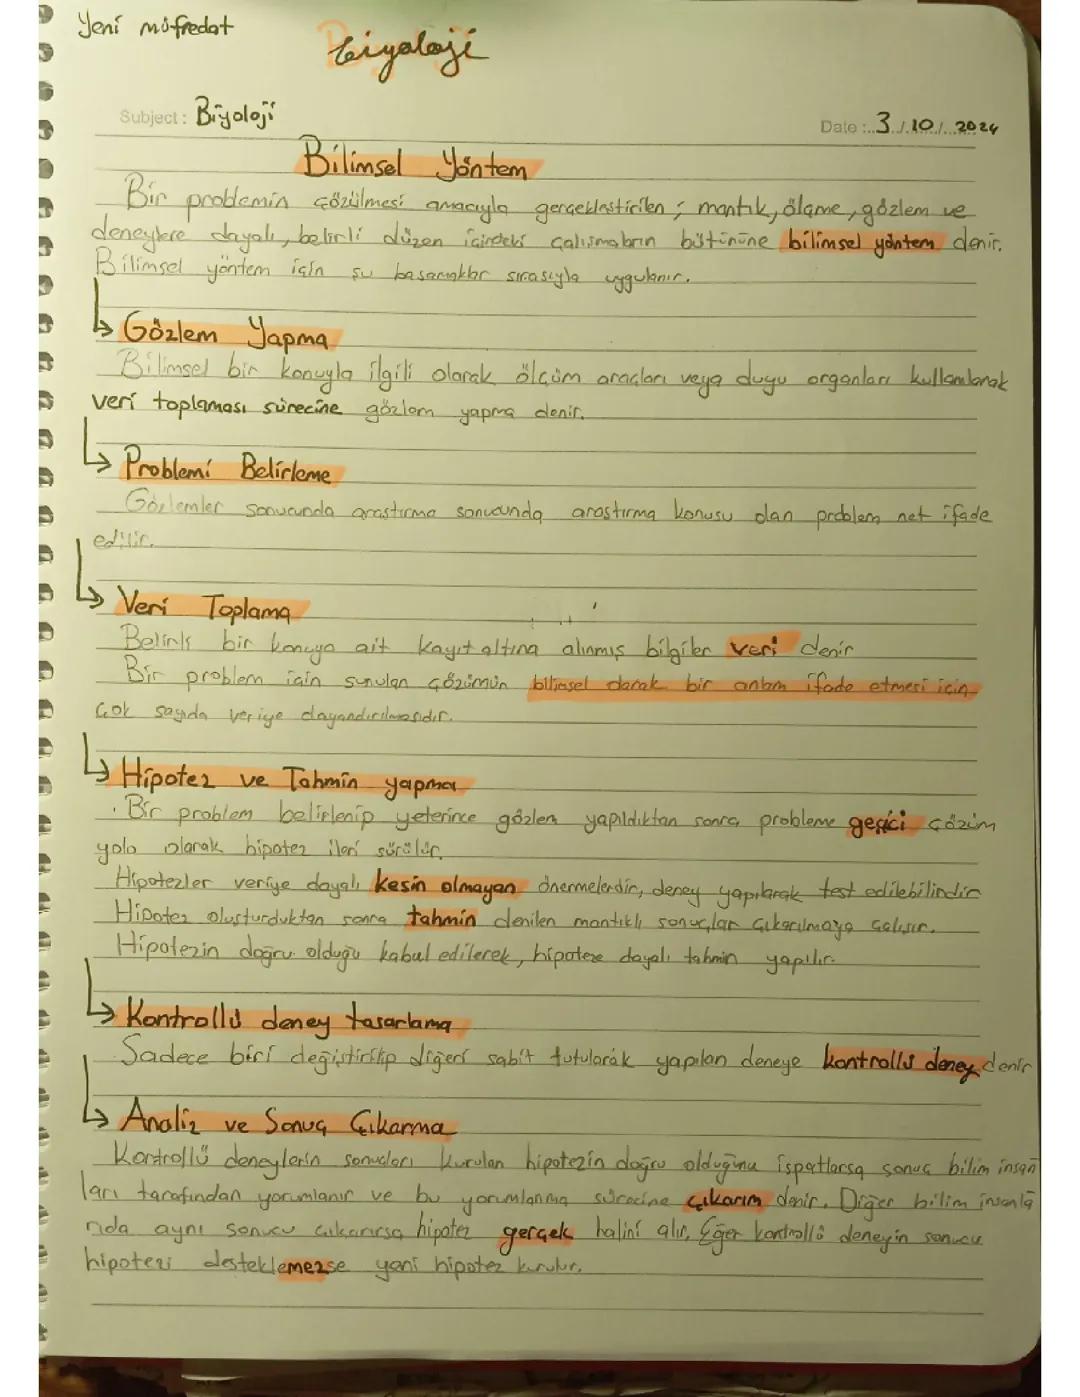 Yeni müfredat
Biyoloji
Subject: Biyoloji
Date: 3/10/2024
Bilimsel Yöntem
Bir problemin çözülmesi amacıyla gerçekleştirilen; mantık, ölçme, gözlem ve
deneylere dayalı, belirli düzen içindeki çalışmaların bütününe bilimsel yöntem denir.
Bilimsel yöntem için şu basamaklar sırasıyla uygulanır.
Gözlem Yapma
Bilimsel bir konuyla ilgili olarak ölçüm araçları veya duyu organları kullanılarak
veri toplaması sürecine gözlem yapma denir.
Problemi Belirleme
Gözlemler sonucunda araştırma sonucunda araştırma konusu olan problem net ifade
edilir.
Veri Toplama
Belirli bir konuya ait kayıt altına alınmış bilgiler veri denir
Bir problem için sunulan çözümün bilimsel olarak bir anlam ifade etmesi için
çok sayıda veriye dayandırılmasıdır.
Hipotez ve Tahmin yapma
· Bir problem belirlenip yeterince gözlem yapıldıktan sonra probleme geçici çözüm
yolu olarak hipotez ileri sürülür.
Hipotezler veriye dayalı kesin olmayan önermelerdir, deney yapılarak test edilebilindir
Hipotez oluşturduktan sonra tahmin denilen mantıklı sonuçlar çıkarılmaya çalışır.
Hipotezin doğru olduğu kabul edilerek, hipoteze dayalı tahmin yapılır.
Kontrollü deney tasarlama
Sadece biri değiştirilip diğeri sabit tutularak yapılan deneye kontrollü deney denir
Analiz ve Sonuç Çıkarma
Kontrollü deneylerin sonuçları kurulan hipotezin doğru olduğunu ispatlarsa sonuç bilim insan
ları tarafından yorumlanır ve bu yorumlanma sürecine çıkarım denir. Diğer bilim insanla
rıda aynı sonucu çıkarırsa hipotez gerçek halini alır. Eğer kontrollü deneyin sonucu
hipotezi desteklemezse yeni hipotez kurulur.